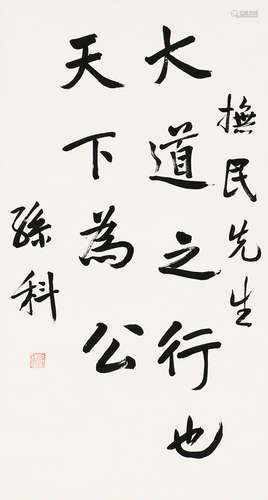 撫民先生
大道之行也
天下為公
孫科